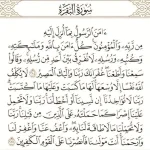 سُورَةُ البَقَرَةِ
ءَامَنَ ٱلرَّسُولُ بِمَآ أُنزِلَ إِلَيْهِ
مِن رَّبِّهِۦ وَٱلْمُؤْمِنُونَ كُلٌّ ءَامَنَ بِٱللَّهِ وَمَلَٰٓئِكَتِهِۦ
وَكُتُبِهِۦ وَرُسُلِهِۦ لَا نُفَرِّقُ بَيْنَ أَحَدٍ مِّن رُّسُلِهِۦ وَقَالُوا۟
سَمِعْنَا وَأَطَعْنَا غُفْرَانَكَ رَبَّنَا وَإِلَيْكَ ٱلْمَصِيرُ ٢٨٥ لَا يُكَلِّفُ
ٱللَّهُ نَفْسًا إِلَّا وُسْعَهَا لَهَا مَا كَسَبَتْ وَعَلَيْهَا مَا ٱكْتَسَبَتْ
رَبَّنَا لَا تُؤَاخِذْنَآ إِن نَّسِينَآ أَوْ أَخْطَأْنَا رَبَّنَا وَلَا تَحْمِلْ
عَلَيْنَآ إِصْرًا كَمَا حَمَلْتَهُۥ عَلَى ٱلَّذِينَ مِن قَبْلِنَا رَبَّنَا
وَلَا تُحَمِّلْنَا مَا لَا طَاقَةَ لَنَا بِهِۦ وَٱعْفُ عَنَّا وَٱغْفِرْ لَنَا
وَٱرْحَمْنَآ أَنتَ مَوْلَىٰنَا فَٱنصُرْنَا عَلَى ٱلْقَوْمِ ٱلْكَٰفِرِينَ ٢٨٦